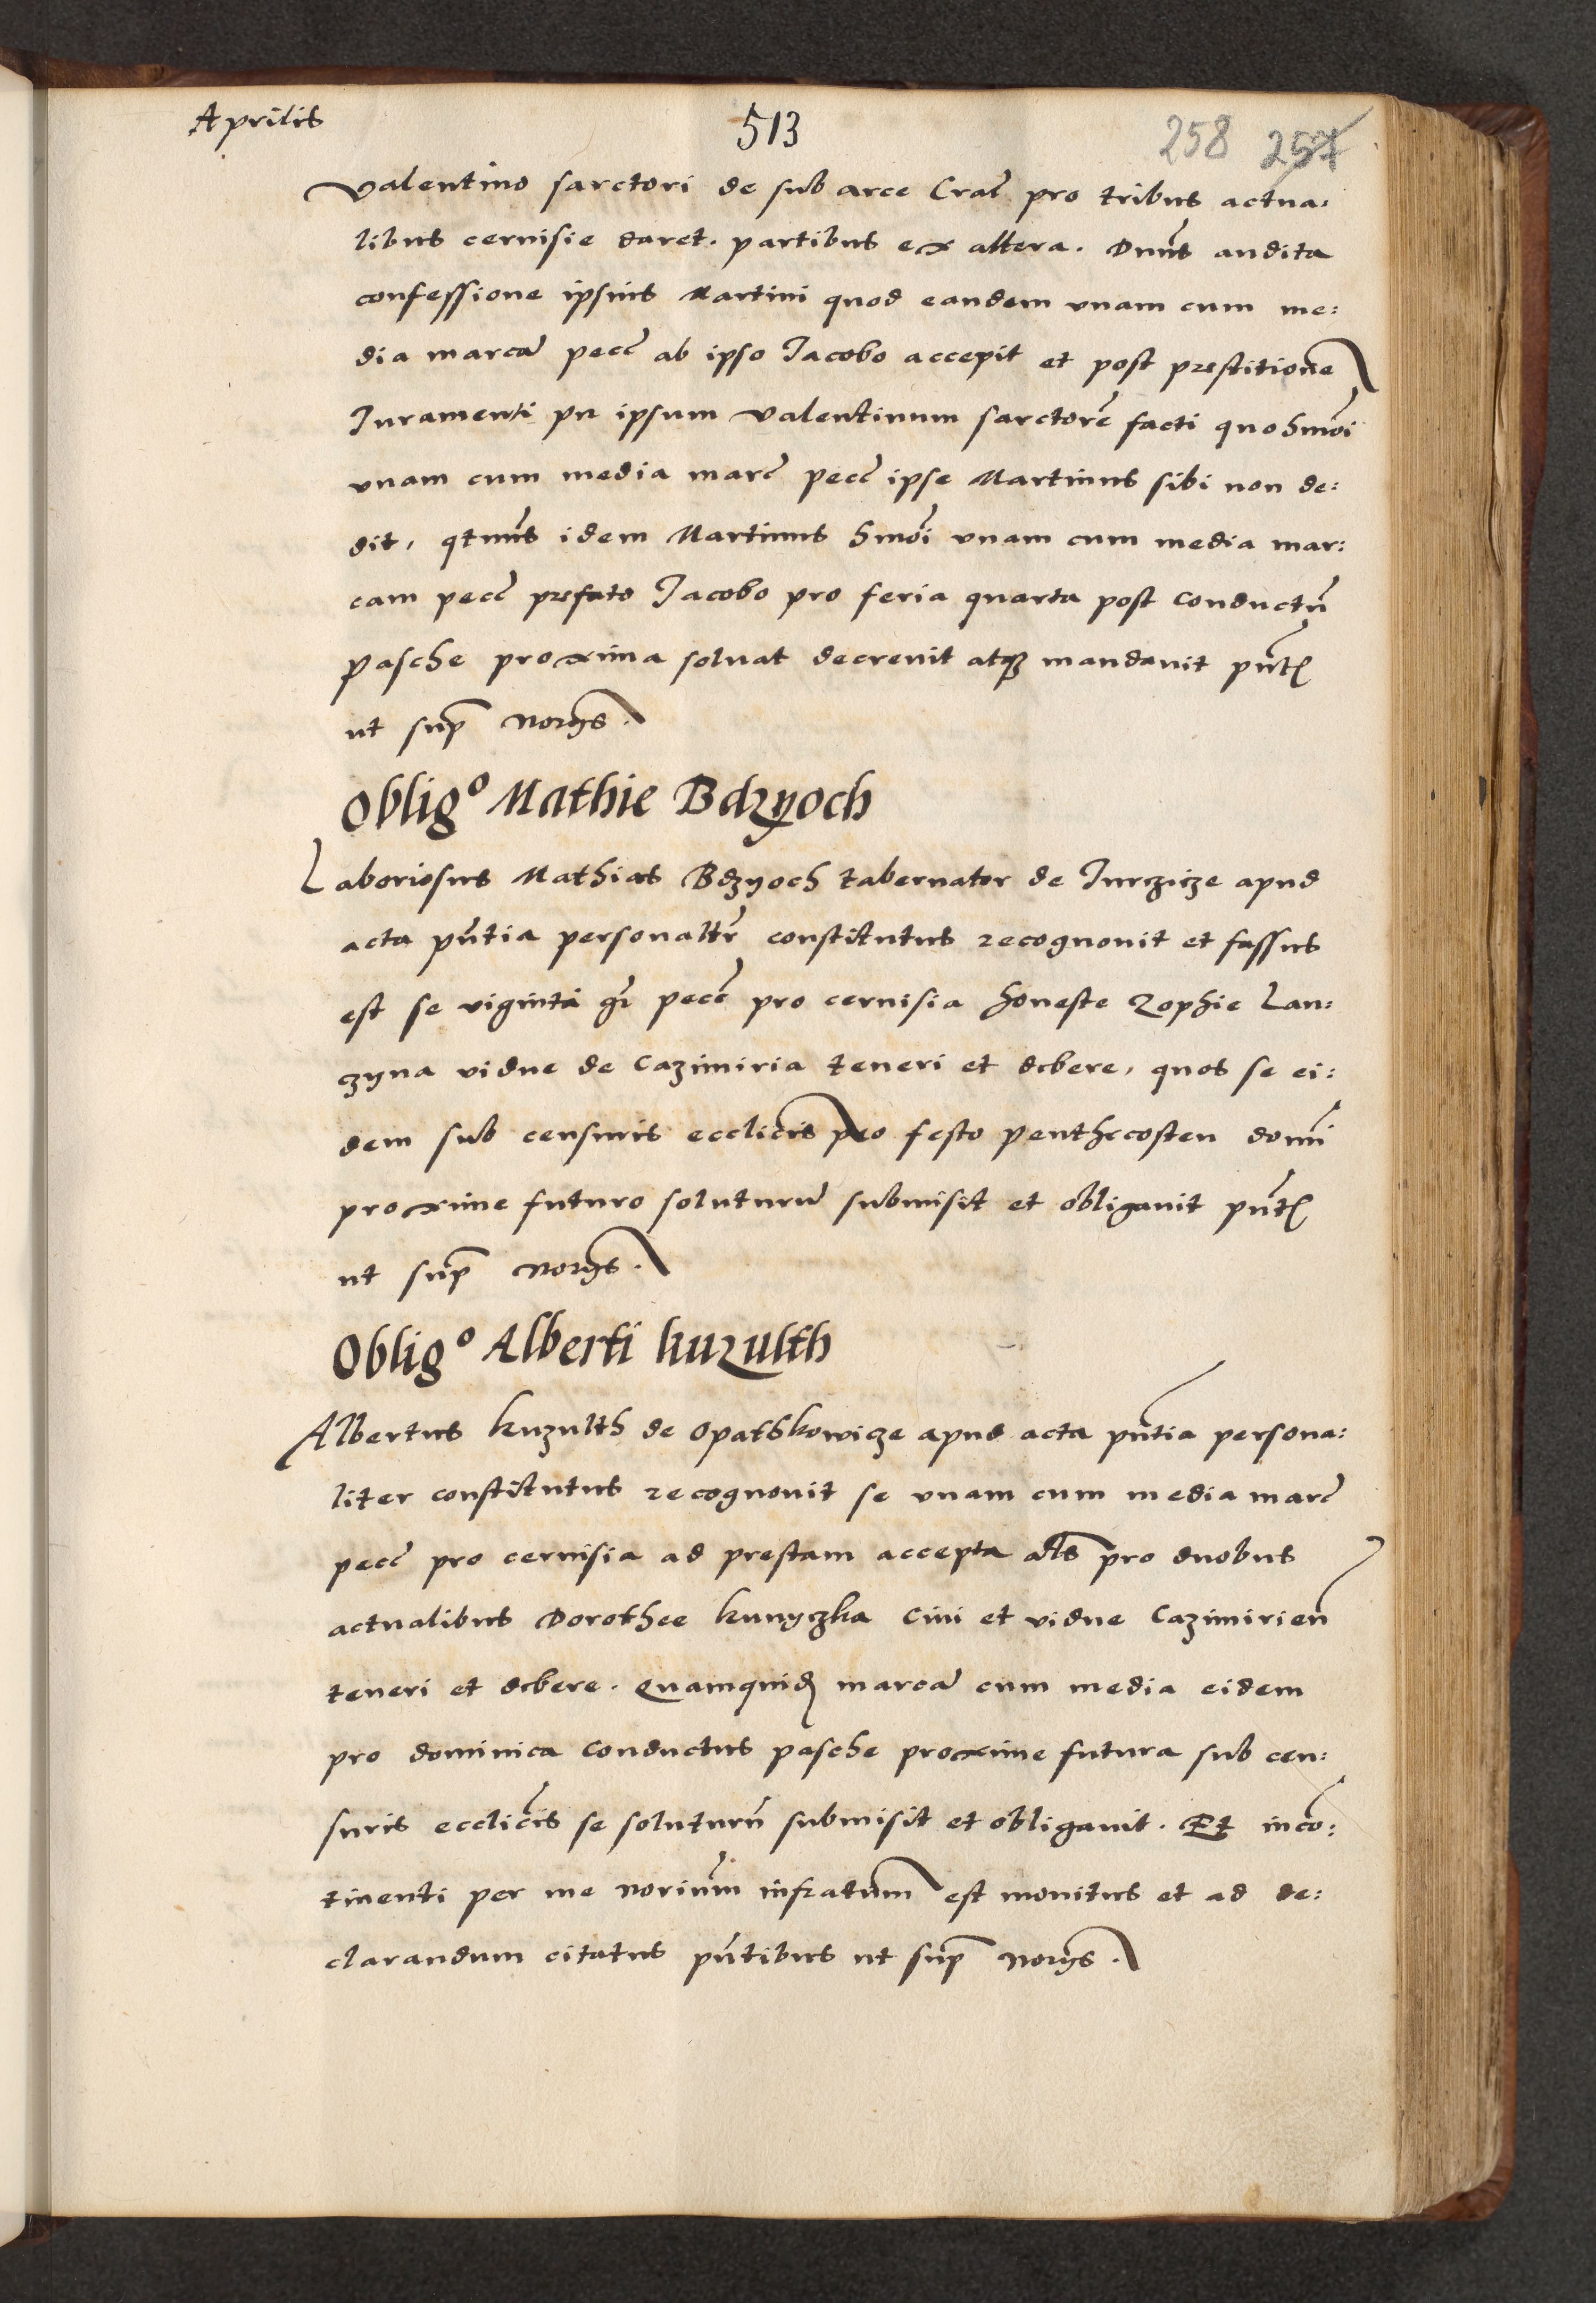 Aprilis
513
258 257
Valentino sarctori de sub arce Crac̃ pro tribus actua:
libus ceruisie daret. partibus ex altera. Dnũs audita
confessione ipsius Martini quod eandem unam cum me:
dia marcã pecc̃ ab ipso Jacobo accepit et post prestitionẽ
Juramenti per ipsum Valentinum sarctorẽ facti quo hmõi
unam cum media marc̃ pecc̃ ipse Martinus sibi non de:
dit, qtnũs idem Martinus hmõi unam cum media mar:
cam pecc̃ prefato Jacobo pro feria quarta post conductũ
pasche proxima soluat decreuit atq3 mandauit pñt
ut sup̃ norijs.
Obligº Mathie Bdzyoch
Laboriosus Mathias Bdzyoch tabernator de Jurczicze apud
acta pñtia personaltr̃ constitutus recognouit et fassus
est se viginti gr̃ pecc̃ pro ceruisia honeste Zophie Lan:
czyna vidue de Cazimiria teneri et debere, quos se ei:
dem sub censuris eccliẽis pro festo penthecosten domĩ
proxime futuro soluturũ submisit et obligauit pñt
ut sup̃ norijs.
Obligº Alberti kuzulth
Albertus kuzulth de Opathkowicze apud acta pñtia persona:
liter constitutus recognouit se unam cum media marc̃
pecc̃ pro ceruisia ad prestam accepta als̃ pro duobus
actualibus Dorothee kunyczka Ciui et vidue Cazimirieñ
teneri et debere. Quamquid marcã cum media eidem
pro dominica conductus pasche proxime futura sub cen:
suris eccliẽis se soluturũ submisit et obligauit. Et incõ:
tinenti per me noriũm infratum est monitus et ad de:
clarandum citatus pñtibus ut sup̃ norijs.